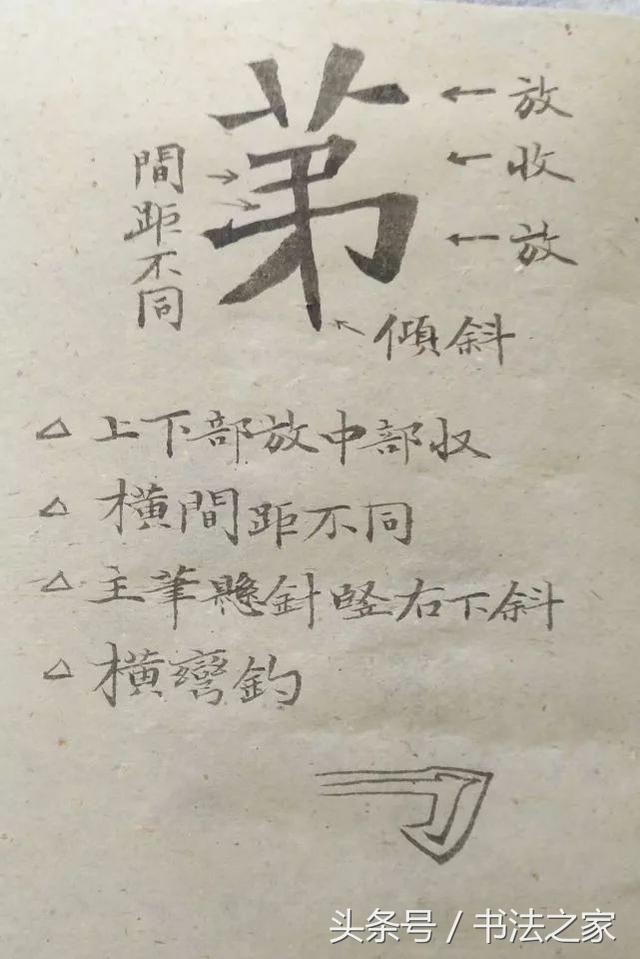 苐
放
收
放
間距不同
傾斜
△ 上下部放中部收
△ 橫間距不同
△ 主筆懸針竪右下斜
△ 橫彎鈎
头条号 / 书法之家